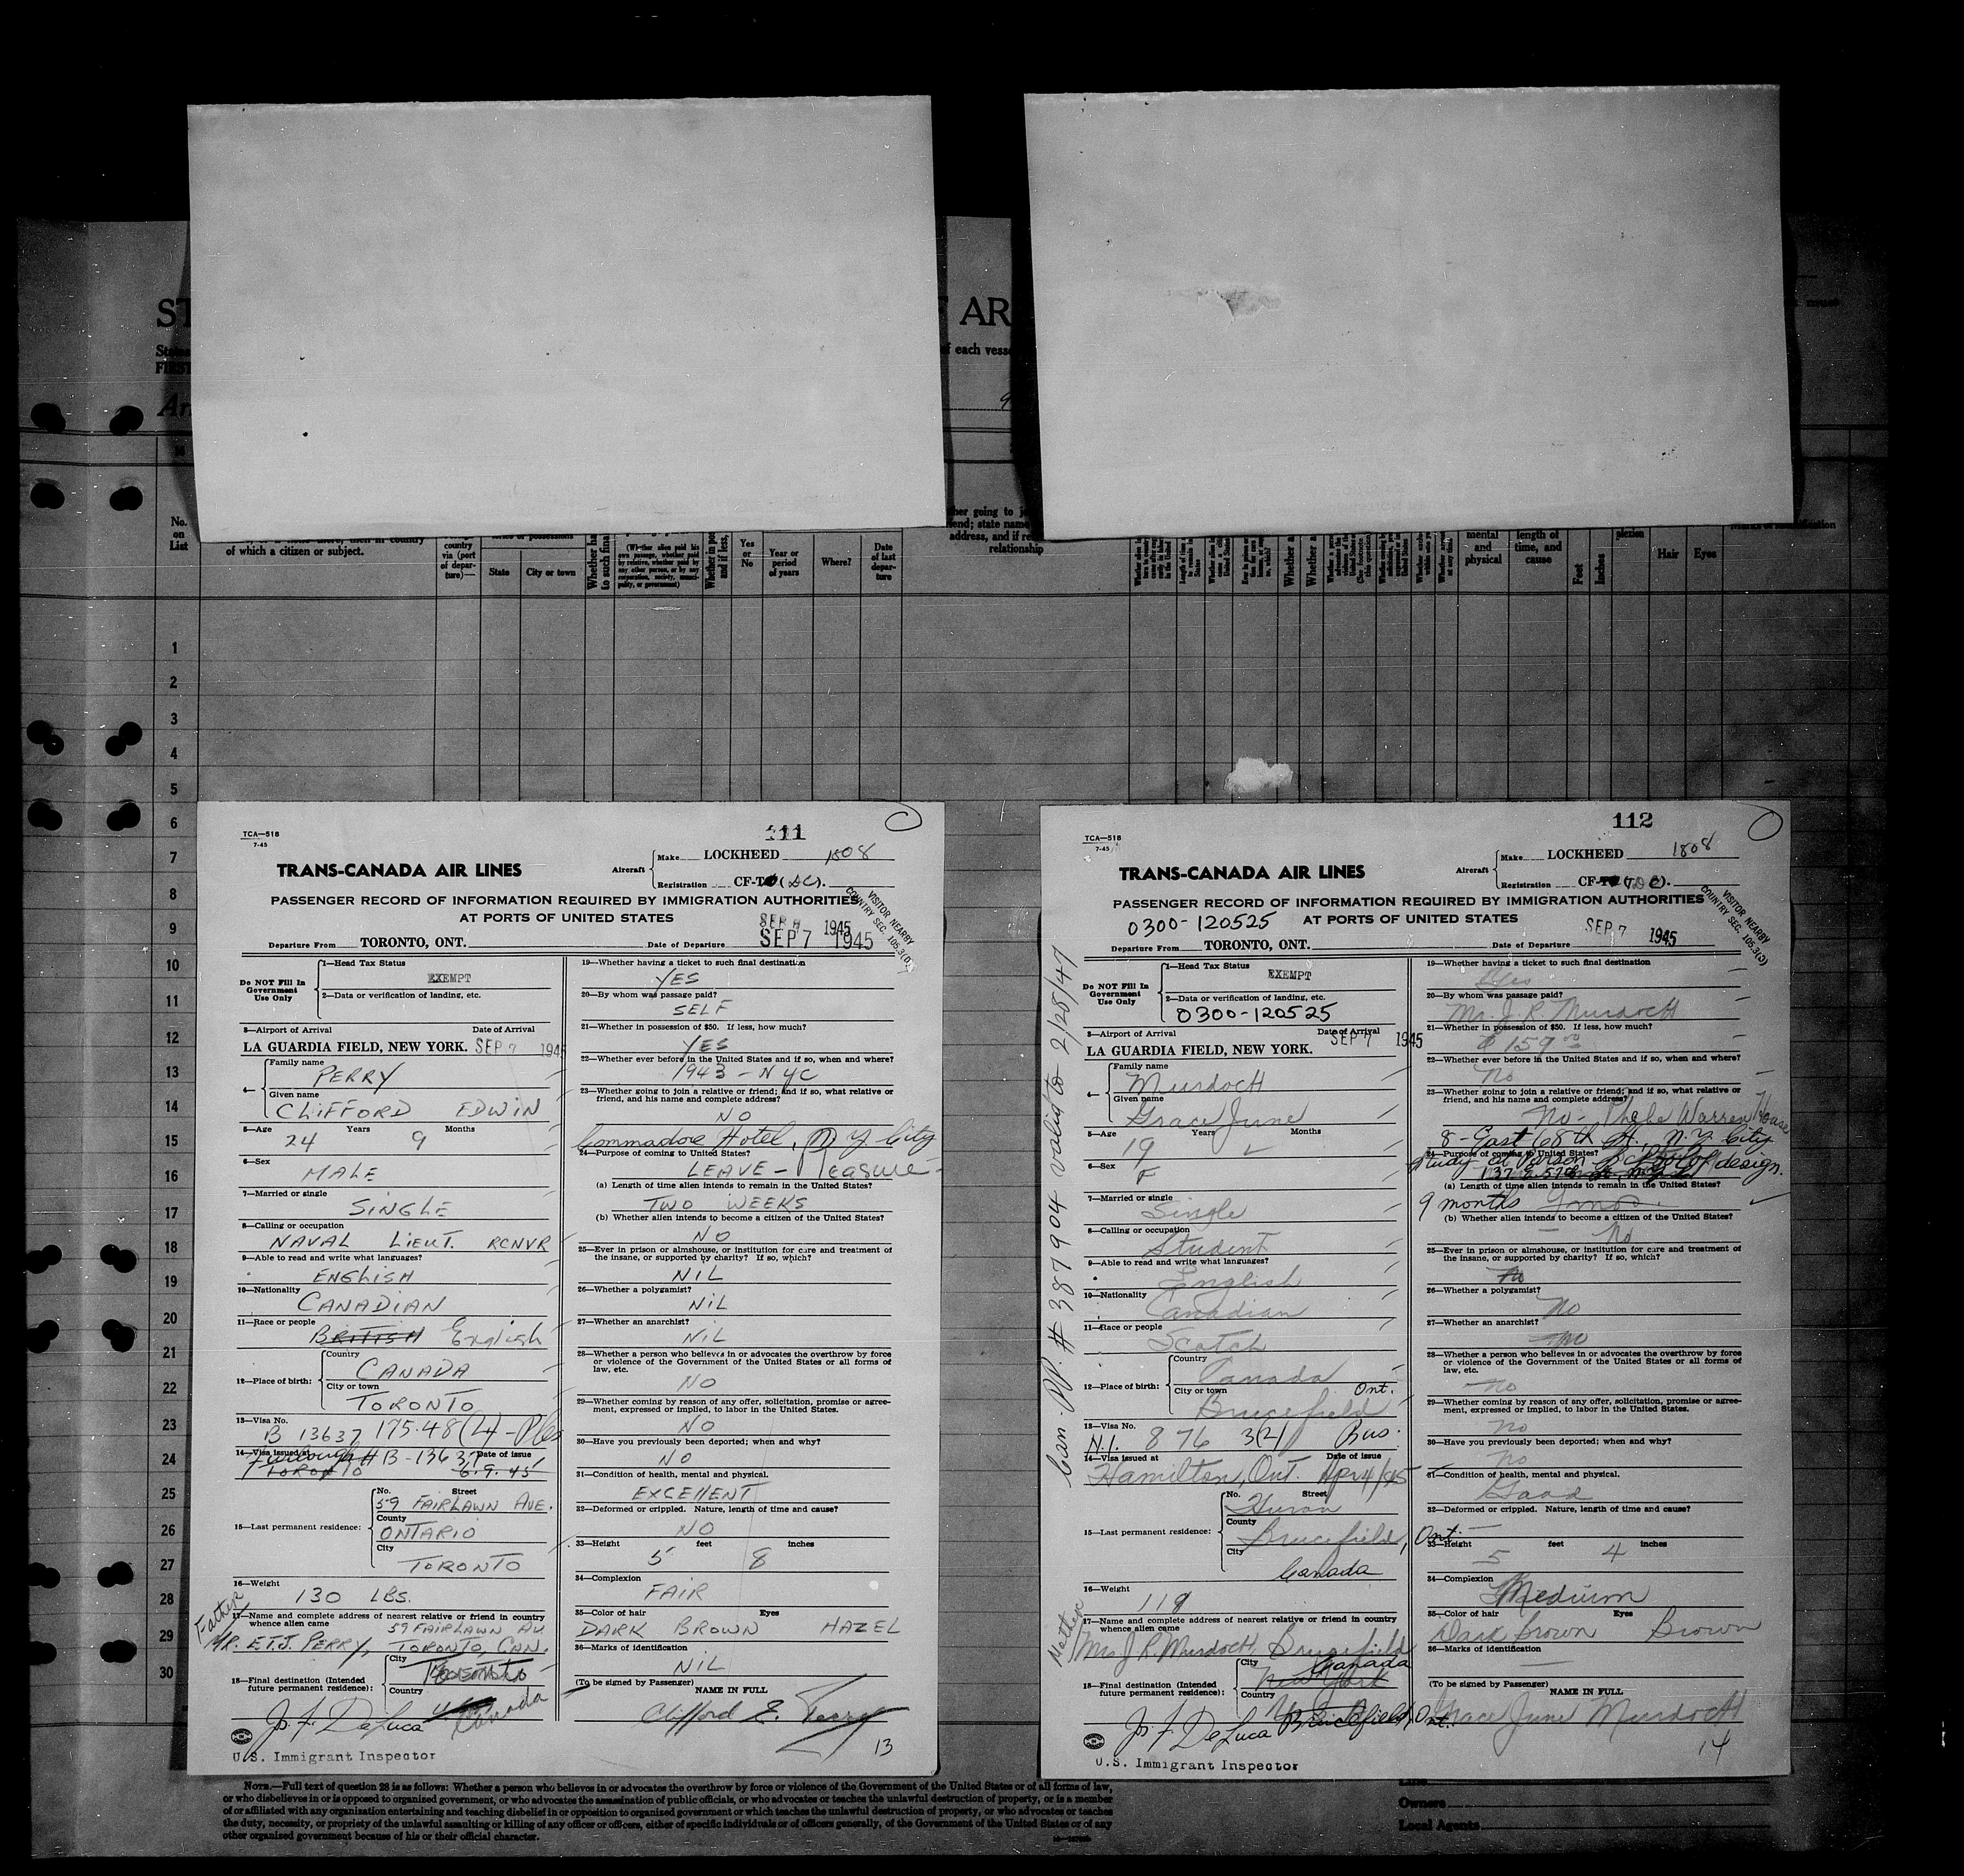 ST
AR
State
of each vess
FIRST
No.
on
List
of which a citizen or subject.
country
via (port
of depar-
ture)—
State
City or town
Whether ha
to such fina
(Whether alien paid his
own passage, whether paid
by relative, whether paid by
any other person, or by any
corporation, society, munici-
pality, or government)
Whether in pos
and if less,
Yes
or
No
Year or
period
of years
Where?
Date
of last
depar-
ture
her going to jo
end; state name
address, and if re
relationship
mental
and
physical
length of
time, and
cause
Feet
Inches
plexion
Hair
Eyes
1
2
3
4
5
6
7
8
9
10
11
12
13
14
15
16
17
18
19
20
21
22
23
24
25
26
27
28
29
30
TCA—518
7-45
111
TRANS-CANADA AIR LINES
Aircraft
Make LOCKHEED 1808
Registration CF-T (DC).
PASSENGER RECORD OF INFORMATION REQUIRED BY IMMIGRATION AUTHORITIES
AT PORTS OF UNITED STATES
VISITOR NEARBY
COUNTRY SEC. 105.3(D)
Departure From TORONTO, ONT. Date of Departure SEP 7 1945
Do NOT Fill In
Government
Use Only
1—Head Tax Status
EXEMPT
2—Data or verification of landing, etc.
3—Airport of Arrival Date of Arrival
LA GUARDIA FIELD, NEW YORK. SEP 7 1945
4—
Family name
PERRY
Given name
CLIFFORD EDWIN
5—Age Years Months
24 9
6—Sex
MALE
7—Married or single
SINGLE
8—Calling or occupation
NAVAL LIEUT. RCNVR
9—Able to read and write what languages?
ENGLISH
10—Nationality
CANADIAN
11—Race or people
BRITISH English
12—Place of birth:
Country
CANADA
City or town
TORONTO
13—Visa No.
B 13637 175.48(2)-Ples
14—Visa issued at Date of issue
Furlough # B-13637
TORONTO 6.9.45
15—Last permanent residence:
No. Street
59 FAIRLAWN AVE.
County
ONTARIO
City
TORONTO
16—Weight
130 LBS.
Father
17—Name and complete address of nearest relative or friend in country
whence alien came
59 FAIRLAWN AV
MR. E.T.J. PERRY, TORONTO, CAN.
18—Final destination (Intended
future permanent residence):
City
Toronto
Country
Canada
Jo. F. DeLuca
U.S. Immigrant Inspector
19—Whether having a ticket to such final destination
YES
20—By whom was passage paid?
SELF
21—Whether in possession of $50. If less, how much?
YES
22—Whether ever before in the United States and if so, when and where?
1943 - NYC
23—Whether going to join a relative or friend; and if so, what relative or
friend, and his name and complete address?
NO
Commadore Hotel, N Y City
24—Purpose of coming to United States?
LEAVE - Pleasure
(a) Length of time alien intends to remain in the United States?
TWO WEEKS
(b) Whether alien intends to become a citizen of the United States?
NO
25—Ever in prison or almshouse, or institution for care and treatment of
the insane, or supported by charity? If so, which?
NIL
26—Whether a polygamist?
NIL
27—Whether an anarchist?
NIL
28—Whether a person who believes in or advocates the overthrow by force
or violence of the Government of the United States or all forms of
law, etc.
NO
29—Whether coming by reason of any offer, solicitation, promise or agree-
ment, expressed or implied, to labor in the United States.
NO
30—Have you previously been deported; when and why?
NO
31—Condition of health, mental and physical.
EXCELLENT
32—Deformed or crippled. Nature, length of time and cause?
NO
33—Height feet inches
5 8
34—Complexion
FAIR
35—Color of hair Eyes
DARK BROWN HAZEL
36—Marks of identification
NIL
(To be signed by Passenger)
NAME IN FULL
Clifford E. Perry
13
TCA—518
7-45
112
TRANS-CANADA AIR LINES
Aircraft
Make LOCKHEED 1808
Registration CF-T
PASSENGER RECORD OF INFORMATION REQUIRED BY IMMIGRATION AUTHORITIES
0300-120525 AT PORTS OF UNITED STATES
VISITOR NEARBY
COUNTRY SEC. 105.3(D)
Departure From TORONTO, ONT. Date of Departure SEP 7 1945
Can. PP. # 387904 valid to 2/28/47
Do NOT Fill In
Government
Use Only
1—Head Tax Status
EXEMPT
2—Data or verification of landing, etc.
0300-120525
3—Airport of Arrival Date of Arrival
LA GUARDIA FIELD, NEW YORK. SEP 7 1945
4—
Family name
Murdoch
Given name
Grace June
5—Age Years Months
19
6—Sex
F
7—Married or single
Single
8—Calling or occupation
Student
9—Able to read and write what languages?
English
10—Nationality
Canadian
11—Race or people
Scotch
12—Place of birth:
Country
Canada
City or town Ont.
Brucefield
13—Visa No.
N.I. 876 3(2) Bus.
14—Visa issued at Date of issue
Hamilton, Ont. Apr 4/45
15—Last permanent residence:
No. Street
Huron
County
Brucefield, Ont.
City
Canada
16—Weight
118
Mother
17—Name and complete address of nearest relative or friend in country
whence alien came
Mrs J R Murdoch, Brucefield
Canada
18—Final destination (Intended
future permanent residence):
City
New York
Country
Brucefield, Ont.
Jo. F. DeLuca
U.S. Immigrant Inspector
19—Whether having a ticket to such final destination
Yes
20—By whom was passage paid?
Mr. J. R. Murdoch
21—Whether in possession of $50. If less, how much?
$159.00
22—Whether ever before in the United States and if so, when and where?
No
23—Whether going to join a relative or friend; and if so, what relative or
friend, and his name and complete address?
No - Phebe Warren House
8 - East 68th St., N.Y. City
24—Purpose of coming to United States?
Study at Parson School of design.
(a) Length of time alien intends to remain in the United States?
9 months
(b) Whether alien intends to become a citizen of the United States?
No
25—Ever in prison or almshouse, or institution for care and treatment of
the insane, or supported by charity? If so, which?
No
26—Whether a polygamist?
No
27—Whether an anarchist?
No
28—Whether a person who believes in or advocates the overthrow by force
or violence of the Government of the United States or all forms of
law, etc.
No
29—Whether coming by reason of any offer, solicitation, promise or agree-
ment, expressed or implied, to labor in the United States.
No
30—Have you previously been deported; when and why?
No
31—Condition of health, mental and physical.
Good
32—Deformed or crippled. Nature, length of time and cause?
33—Height feet inches
5 4
34—Complexion
Medium
35—Color of hair Eyes
Dark brown Brown
36—Marks of identification
(To be signed by Passenger)
NAME IN FULL
Grace June Murdoch
14
NOTE.—Full text of question 28 is as follows: Whether a person who believes in or advocates the overthrow by force or violence of the Government of the United States or of all forms of law,
or who disbelieves in or is opposed to organized government, or who advocates the assassination of public officials, or who advocates or teaches the unlawful destruction of property, or is a member
of or affiliated with any organization entertaining and teaching disbelief in or opposition to organized government or which teaches the unlawful destruction of property, or who advocates or teaches
the duty, necessity, or propriety of the unlawful assaulting or killing of any officer or officers, either of specific individuals or of officers generally, of the Government of the United States or of any
other organized government because of his or their official character.
Line
Owners
Local Agents